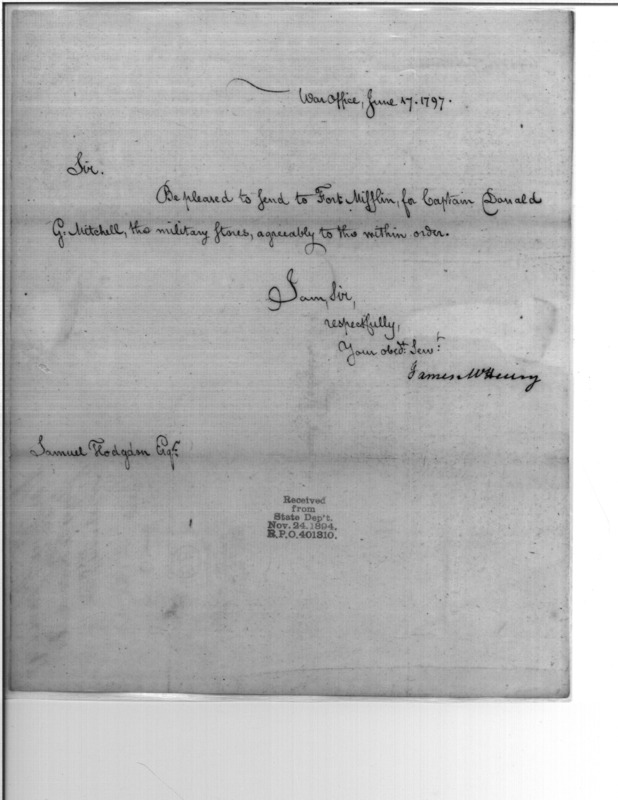 War Office, June 17. 1797.
Sir.
Be pleased to send to Fort Mifflin, for Captain Donald
G. Mitchell, the military stores, agreeably to the within order.
I am, Sir,
respectfully,
Your obedt. Servt.
James McHenry
Samuel Hodgdon Esqr.
Received
from
State Dep't.
Nov. 24. 1894.
R.P.O. 401310.